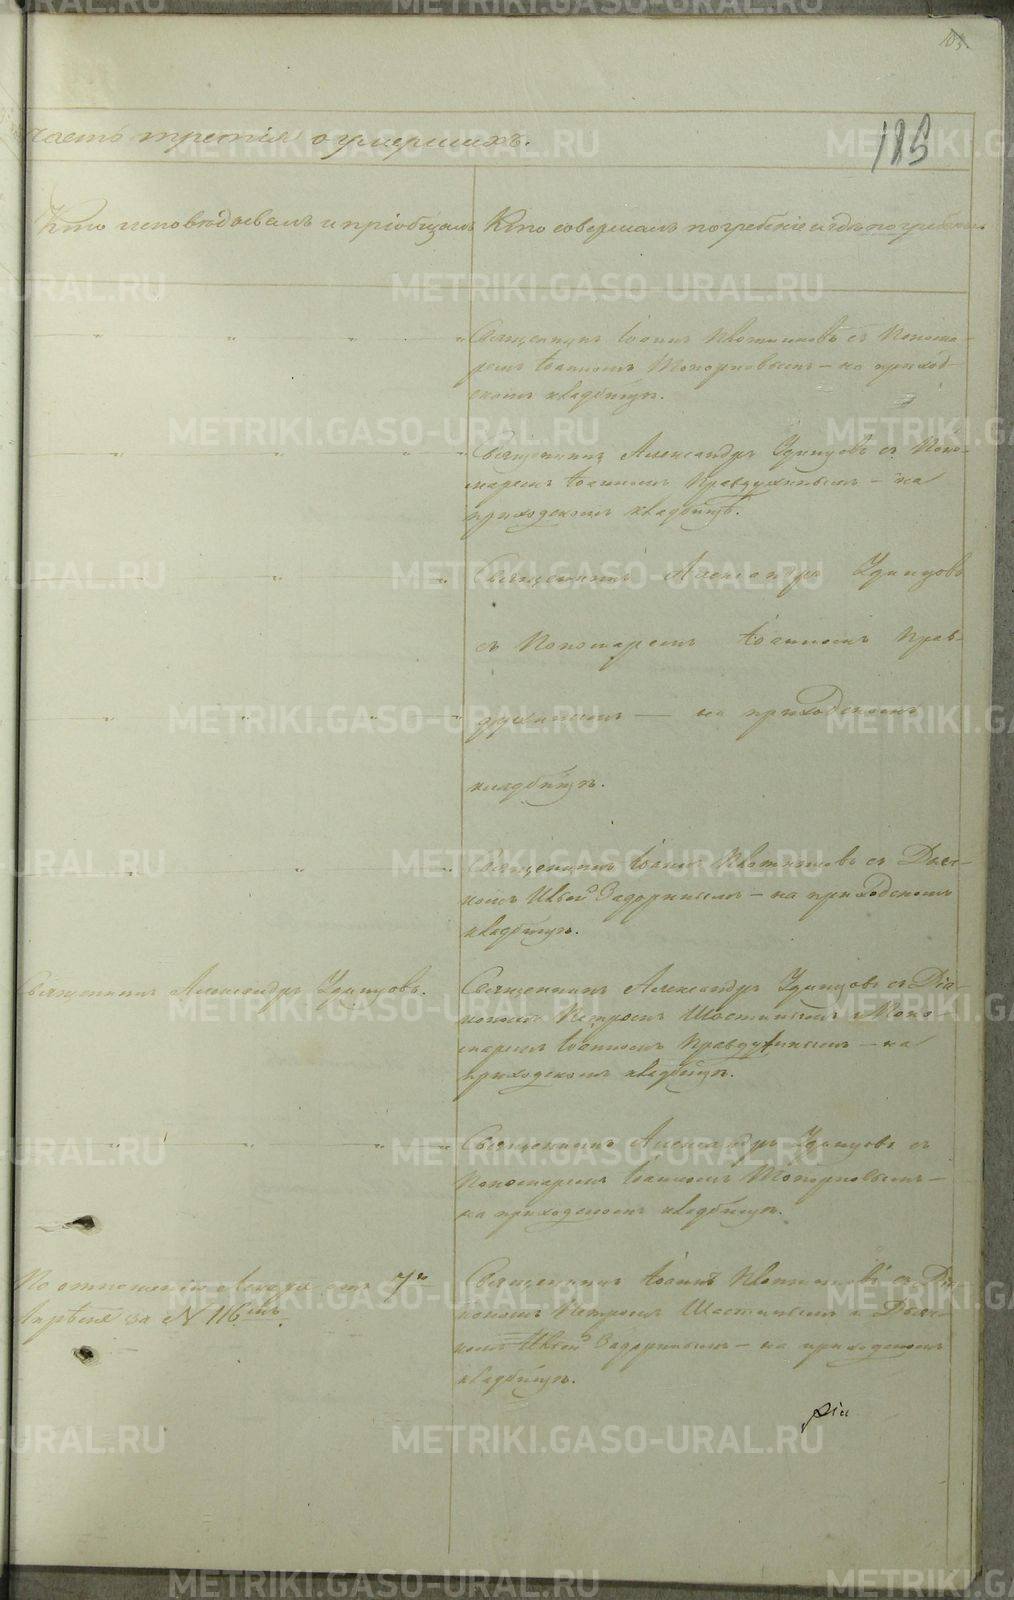 185
часть третія о умершихъ.
Кто исповѣдывалъ и пріобщалъ
Кто совершалъ погребеніе и гдѣ погребены
Священникъ Іоаннъ с Понома-
ремъ Іоанномъ Топорковымъ — на приход-
скомъ кладбищѣ.
Священникъ Александръ Удинцовъ съ Поно-
маремъ Іоанномъ Правдухинымъ — на
приходскомъ кладбищѣ.
Священникъ Александръ Удинцовъ
съ Пономаремъ Іоанномъ Прав-
духинымъ — на приходскомъ
кладбищѣ.
Священникъ Іоаннъ съ Дьяч-
комъ Задоринымъ — на приходскомъ
кладбищѣ.
Священникъ Александръ Удинцовъ.
Священникъ Александръ Удинцовъ съ Діа-
кономъ Петромъ и Поно-
маремъ Іоанномъ Правдухинымъ — на
приходскомъ кладбищѣ.
Священникъ Александръ Удинцовъ съ
Пономаремъ Іоанномъ Топорковымъ —
на приходскомъ кладбищѣ.
По отношенію отъ 7го
Апрѣля за N 116мъ.
Священникъ Іоаннъ съ Діа-
кономъ Петромъ и Дьяч-
комъ Задоринымъ — на приходскомъ
кладбищѣ.
METRIKI.GASO-URAL.RU